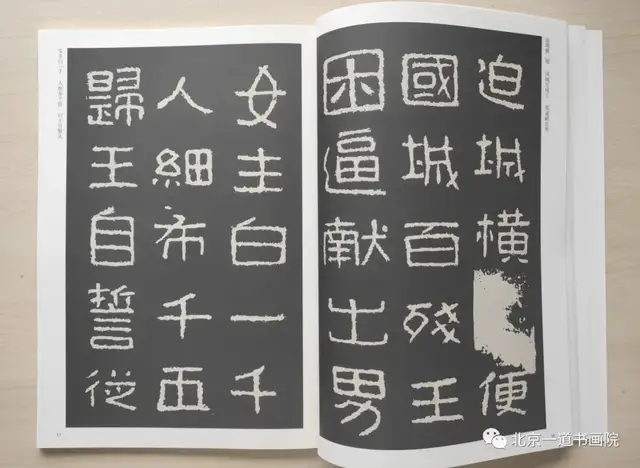 迫城橫便
國城百残王
困逼献出男
女主白一千
人細布千匹
歸王自誓從
北京一道书画院